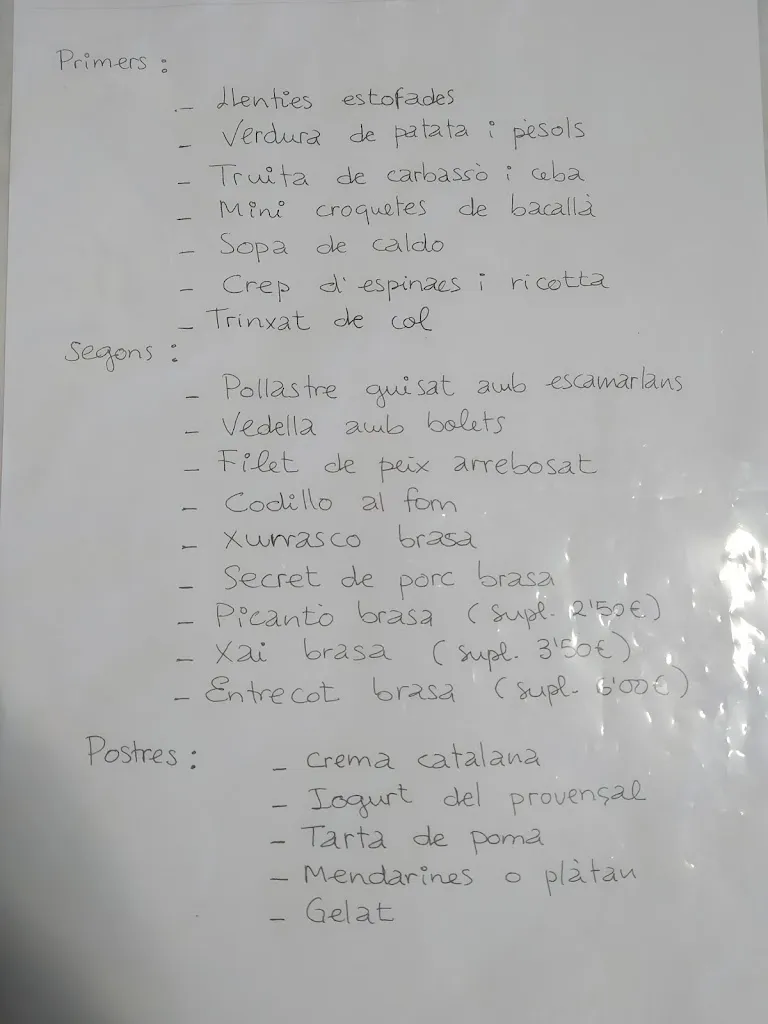 Primers :
- Llenties estofades
- Verdura de patata i pèsols
- Truita de carbassò i ceba
- Mini croquetes de bacallà
- Sopa de caldo
- Crep d'espinacs i ricotta
- Trinxat de col
Segons :
- Pollastre guisat amb escamarlans
- Vedella amb bolets
- Filet de peix arrebosat
- Codillo al forn
- Xurrasco brasa
- Secret de porc brasa
- Picantò brasa (supl. 2'50€)
- Xai brasa (supl. 3'50€)
- Entrecot brasa (supl. 6'00€)
Postres : - Crema catalana
- Iogurt del provençal
- Tarta de poma
- Mendarines o plàtan
- Gelat